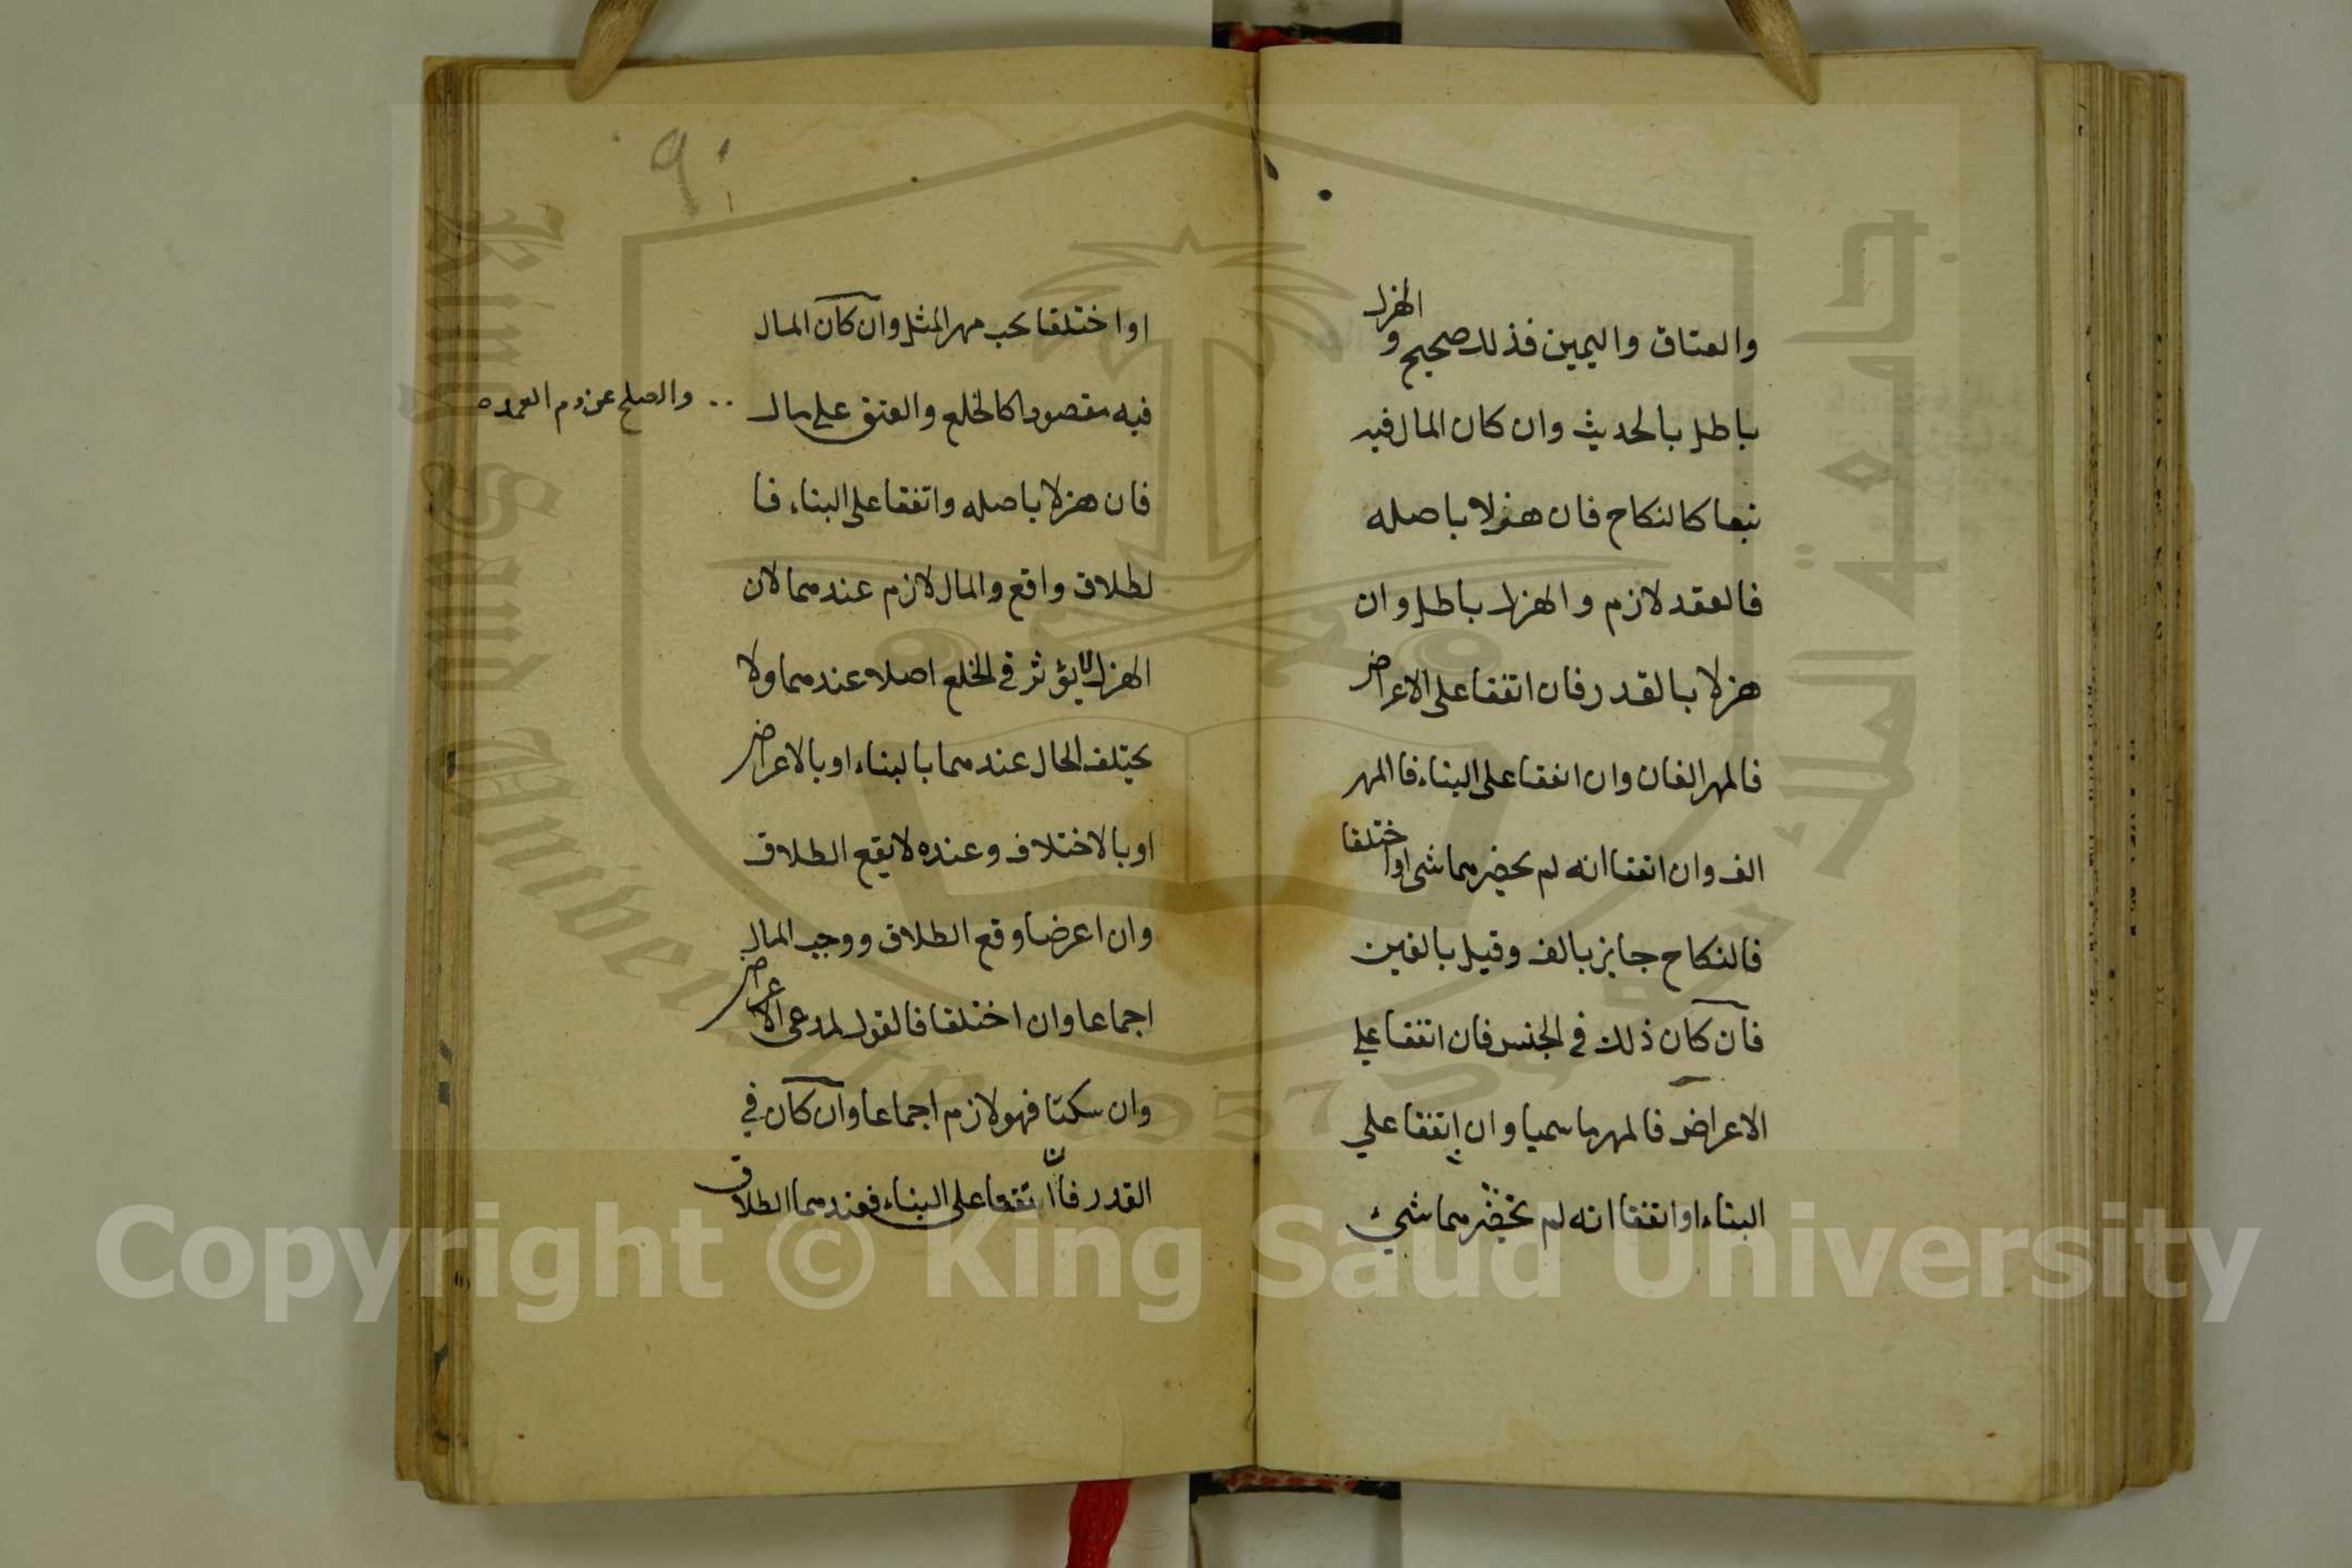 والعتاق واليمين فذلك صحيح والهزل
باطل بالحديث وان كان المال فيه
تبعا كالنكاح فان هزلا باصله
فالعقد لازم والهزل باطل وان
هزلا بالقدر فان اتفقا على الاعراض
فالمهر الفان وان اتفقا على البناء فالمهر
الف وان اتفقا انه لم يحضرهما شي او اختلفا
فالنكاح جايز بالف وقيل بالفين
فان كان ذلك في الجنس فان اتفقا على
الاعراض فالمهر ما سميا وان اتفقا على
البناء او اتفقا انه لم يحضرهما شيء
٩٠
او اختلفا يجب مهر المثل وان كان المال
فيه مقصودا كالخلع والعتق على مال
والصلح عن دم العمد
فان هزلا باصله واتفقا على البناء فا
لطلاق واقع والمال لازم عندهما لان
الهزل لا يؤثر في الخلع اصلا عندهما ولا
يختلف الحال عندهما بالبناء او بالاعراض
او بالاختلاف وعنده لا يقع الطلاق
وان اعرضا وقع الطلاق ووجب المال
اجماعا وان اختلفا فالقول لمدعى الاعراض
وان سكتا فهو لازم اجماعا وان كان في
القدر فان اتفقا على البناء فعندهما الطلاق
جامعة الملك سعود
King Saud University
1957
Copyright © King Saud University